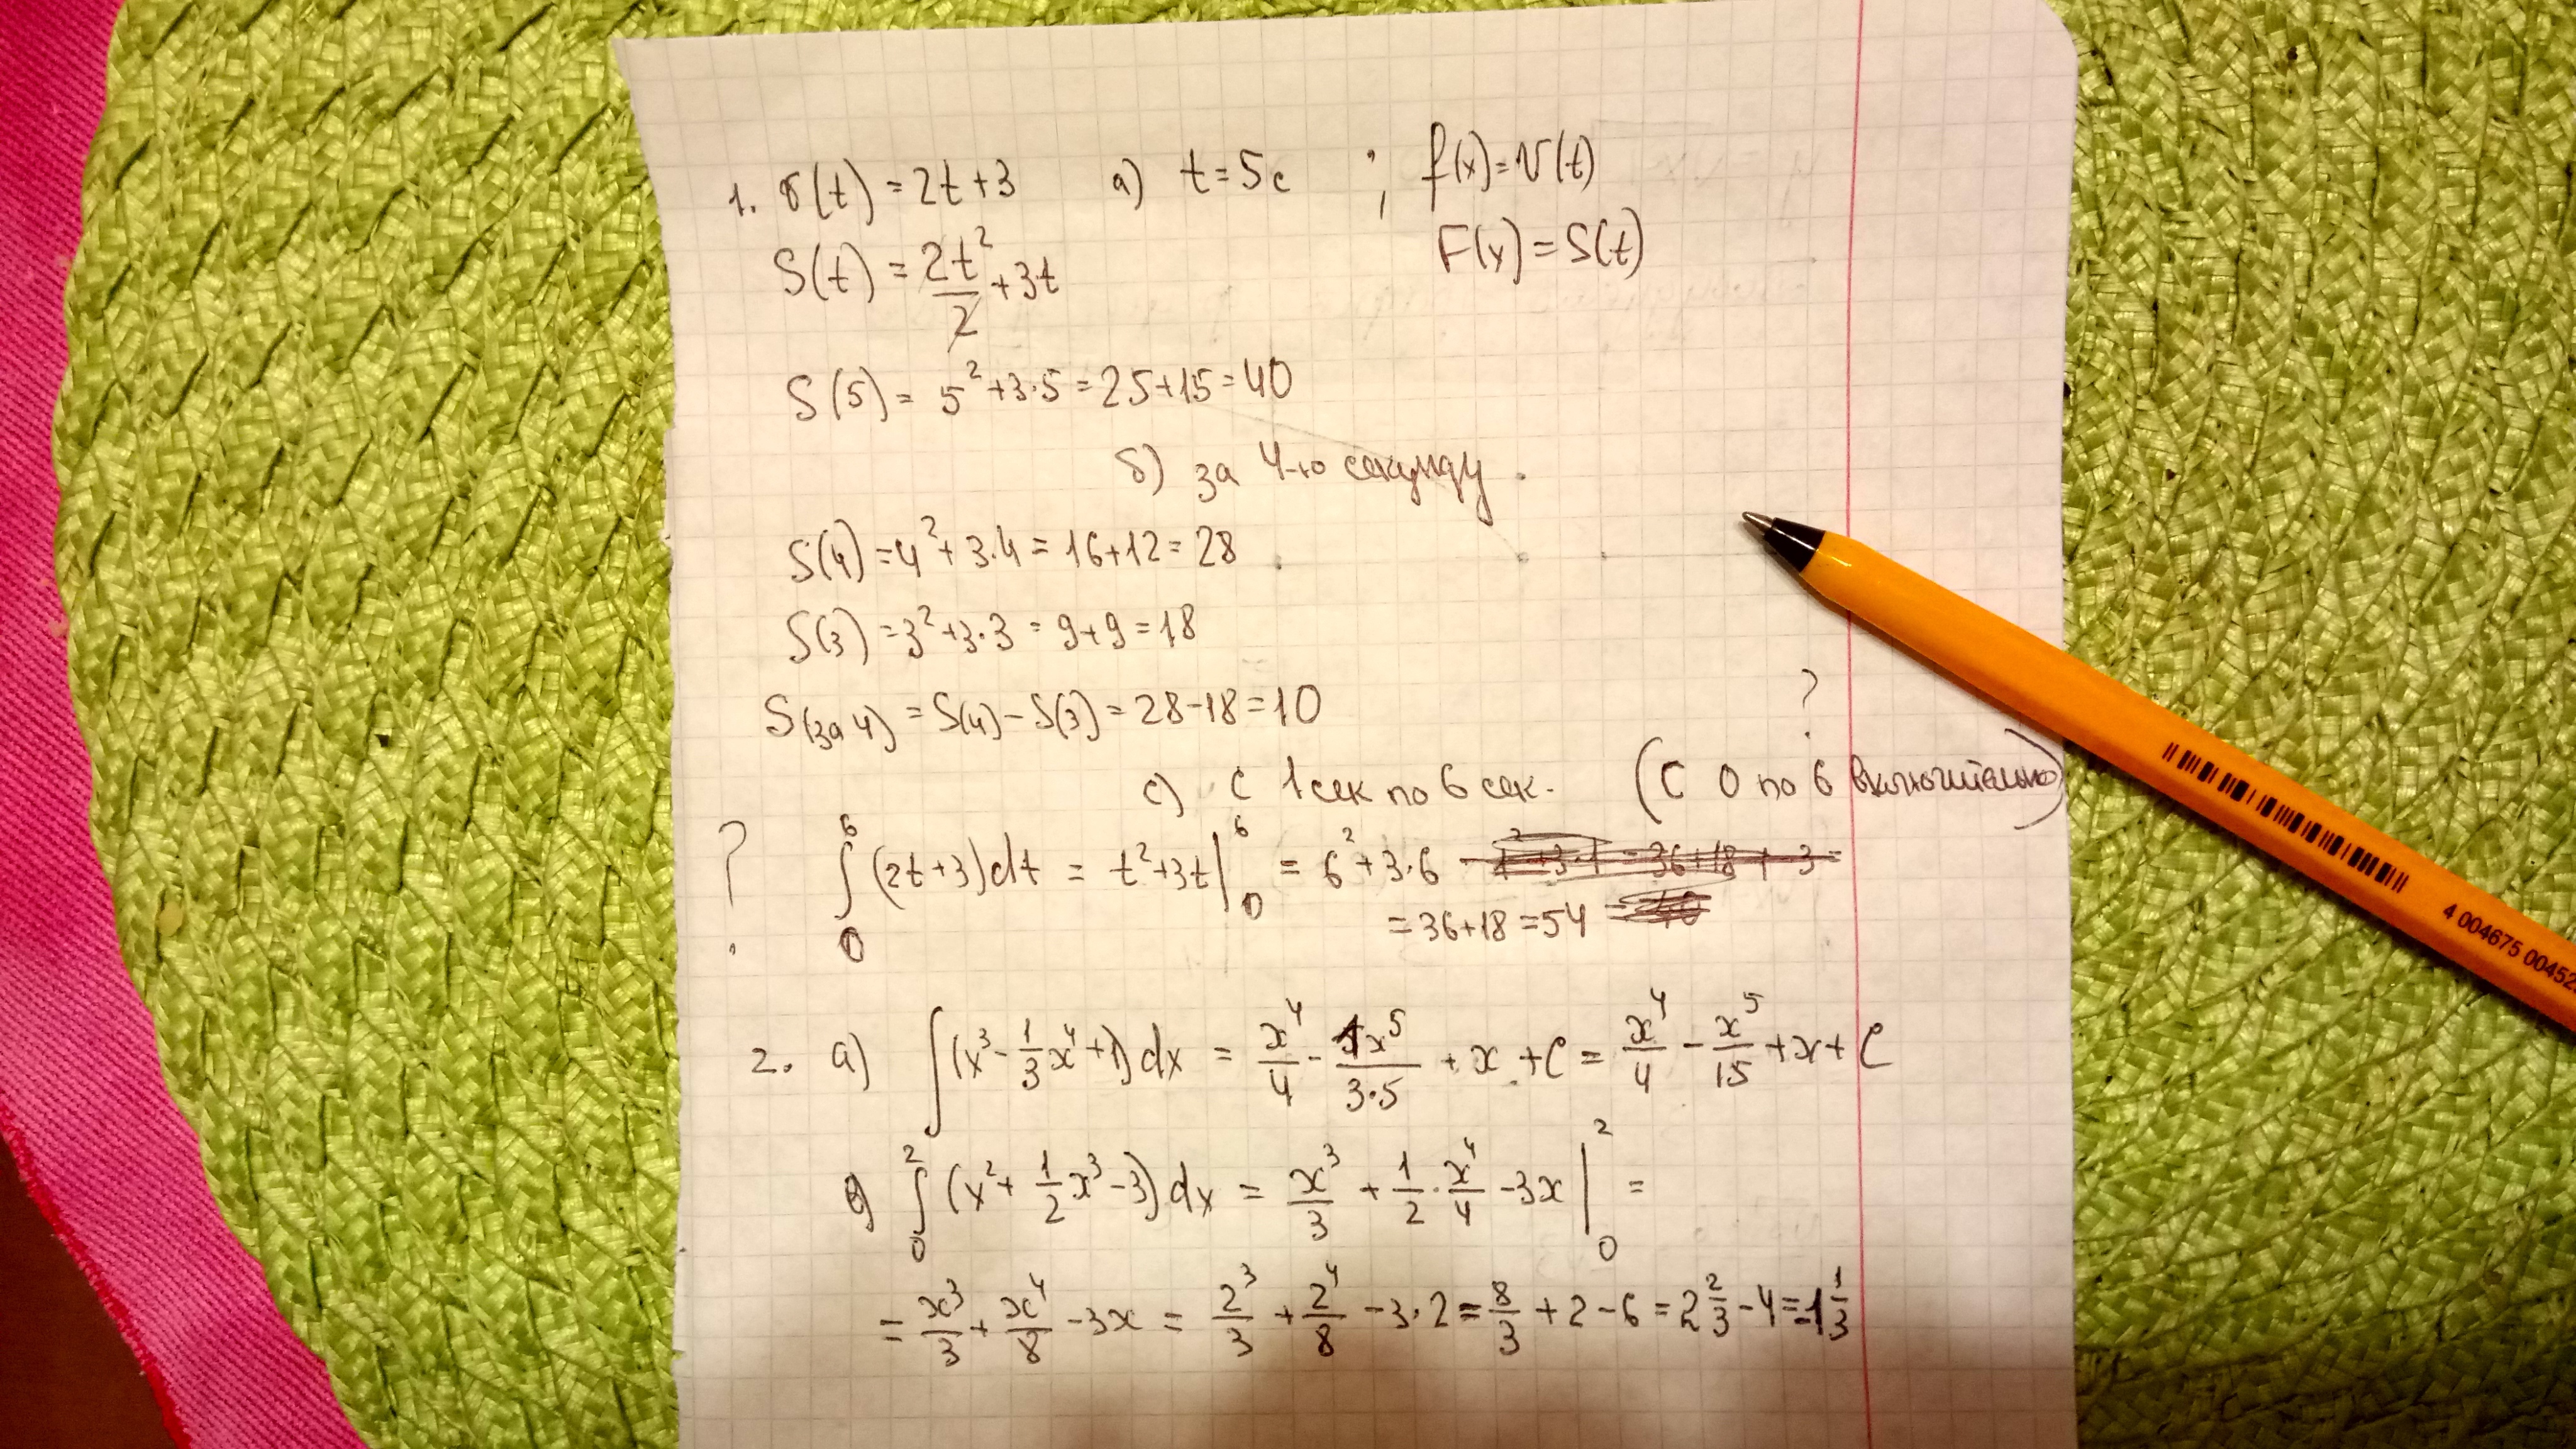 1. v(t) = 2t+3 a) t=5c ; f(x)=v(t)
S(t) = 2t²/2 + 3t F(x)=S(t)
S(5) = 5²+3·5=25+15=40
б) за 4-ю секунду.
S(4)=4²+3·4=16+12=28
S(3)=3²+3·3=9+9=18
S(за 4) = S(4)-S(3)=28-18=10
?
c) с 1 сек по 6 сек. (с 0 по 6 включительно)
? ∫₀⁶ (2t+3)dt = t²+3t |₀⁶ = 6²+3·6 - 1²+3·1 = 36+18+3=
=36+18=54
2. a) ∫(x³-1/3x⁴+1)dx = x⁴/4 - 1x⁵/3·5 + x + C = x⁴/4 - x⁵/15 + x + C
∫₀² (x²+1/2x³-3)dx = x³/3 + 1/2·x⁴/4 - 3x |₀² =
= x³/3 + x⁴/8 - 3x = 2³/3 + 2⁴/8 - 3·2 = 8/3 + 2 - 6 = 2 2/3 - 4 = -1 1/3
4 004675 00452